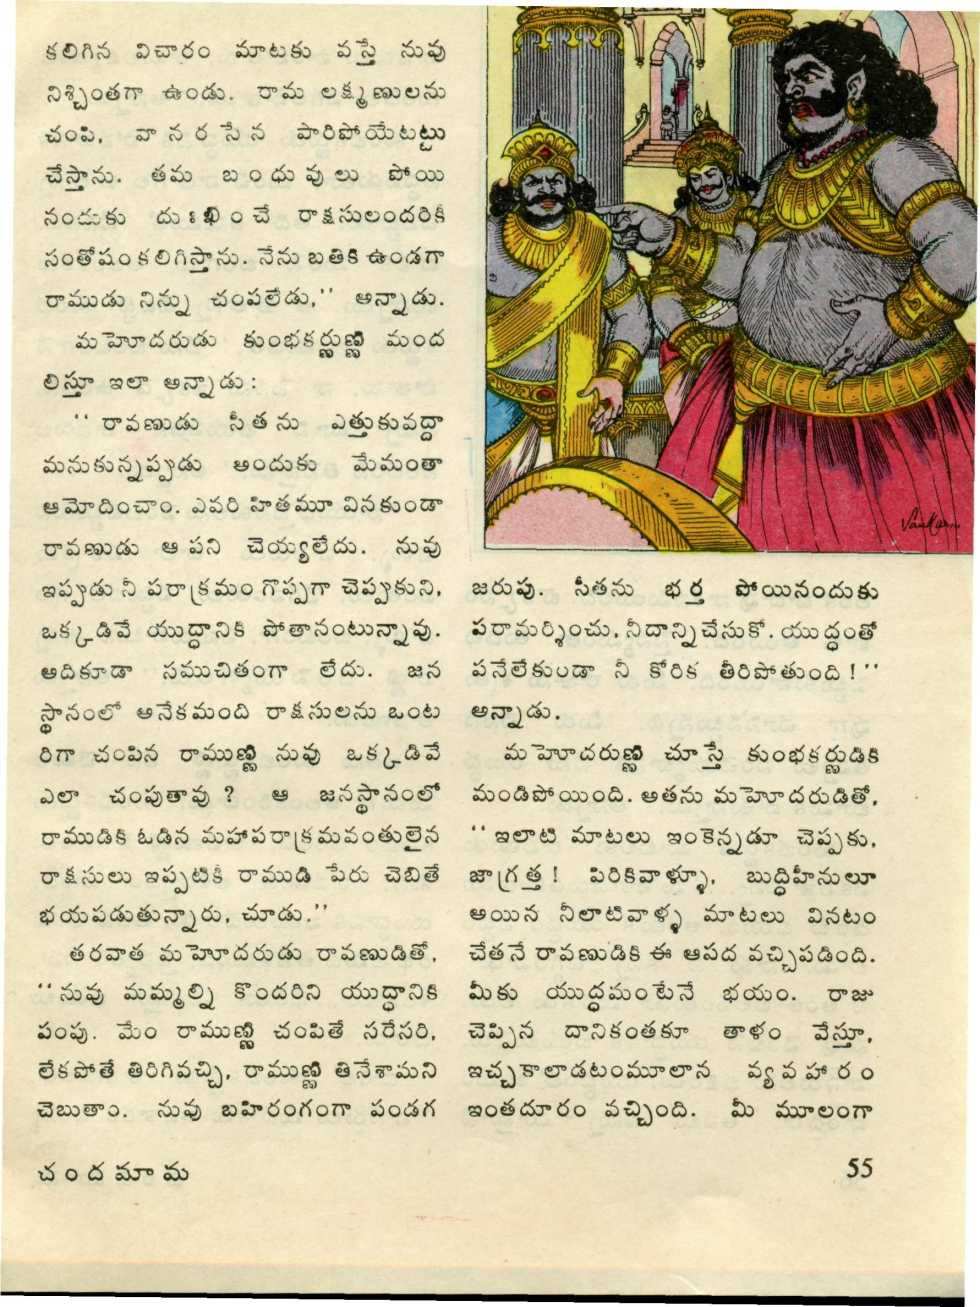 కలిగిన విచారం మాటకు వస్తే నువు
నిశ్చింతగా ఉండు. రామ లక్ష్మణులను
చంపి, వానరసేన పారిపోయేటట్టు
చేస్తాను. తమ బంధువులు పోయి
నందుకు దుఃఖించే రాక్షసులందరికీ
సంతోషంకలిగిస్తాను. నేను బతికి ఉండగా
రాముడు నిన్ను చంపలేడు,'' అన్నాడు.
మహోదరుడు కుంభకర్ణుణ్ణి మంద
లిస్తూ ఇలా అన్నాడు:
''రావణుడు సీతను ఎత్తుకువద్దా
మనుకున్నప్పుడు అందుకు మేమంతా
ఆమోదించాం. ఎవరి హితమూ వినకుండా
రావణుడు ఆ పని చెయ్యలేదు. నువు
ఇప్పుడు నీ పరాక్రమం గొప్పగా చెప్పుకుని,
ఒక్కడివే యుద్ధానికి పోతానంటున్నావు.
అదికూడా సముచితంగా లేదు. జన
స్థానంలో అనేకమంది రాక్షసులను ఒంట
రిగా చంపిన రాముణ్ణి నువు ఒక్కడివే
ఎలా చంపుతావు? ఆ జనస్థానంలో
రాముడికి ఓడిన మహాపరాక్రమవంతులైన
రాక్షసులు ఇప్పటికీ రాముడి పేరు చెబితే
భయపడుతున్నారు, చూడు.''
తరవాత మహోదరుడు రావణుడితో,
''నువు మమ్మల్ని కొందరిని యుద్ధానికి
పంపు. మేం రాముణ్ణి చంపితే సరేసరి,
లేకపోతే తిరిగివచ్చి, రాముణ్ణి తినేశామని
చెబుతాం. నువు బహిరంగంగా పండగ
Vankar
జరుపు. సీతను భర్త పోయినందుకు
పరామర్శించు, నీదాన్నిచేసుకో. యుద్ధంతో
పనేలేకుండా నీ కోరిక తీరిపోతుంది!''
అన్నాడు.
మహోదరుణ్ణి చూస్తే కుంభకర్ణుడికి
మండిపోయింది. అతను మహోదరుడితో,
''ఇలాటి మాటలు ఇంకెన్నడూ చెప్పకు,
జాగ్రత్త! పిరికివాళ్ళూ, బుద్ధిహీనులూ
అయిన నీలాటివాళ్ళ మాటలు వినటం
చేతనే రావణుడికి ఈ ఆపద వచ్చిపడింది.
మీకు యుద్ధమంటేనే భయం. రాజు
చెప్పిన దానికంతకూ తాళం వేస్తూ,
ఇచ్చకాలాడటంమూలాన వ్యవహారం
ఇంతదూరం వచ్చింది. మీ మూలంగా
చందమామ
55